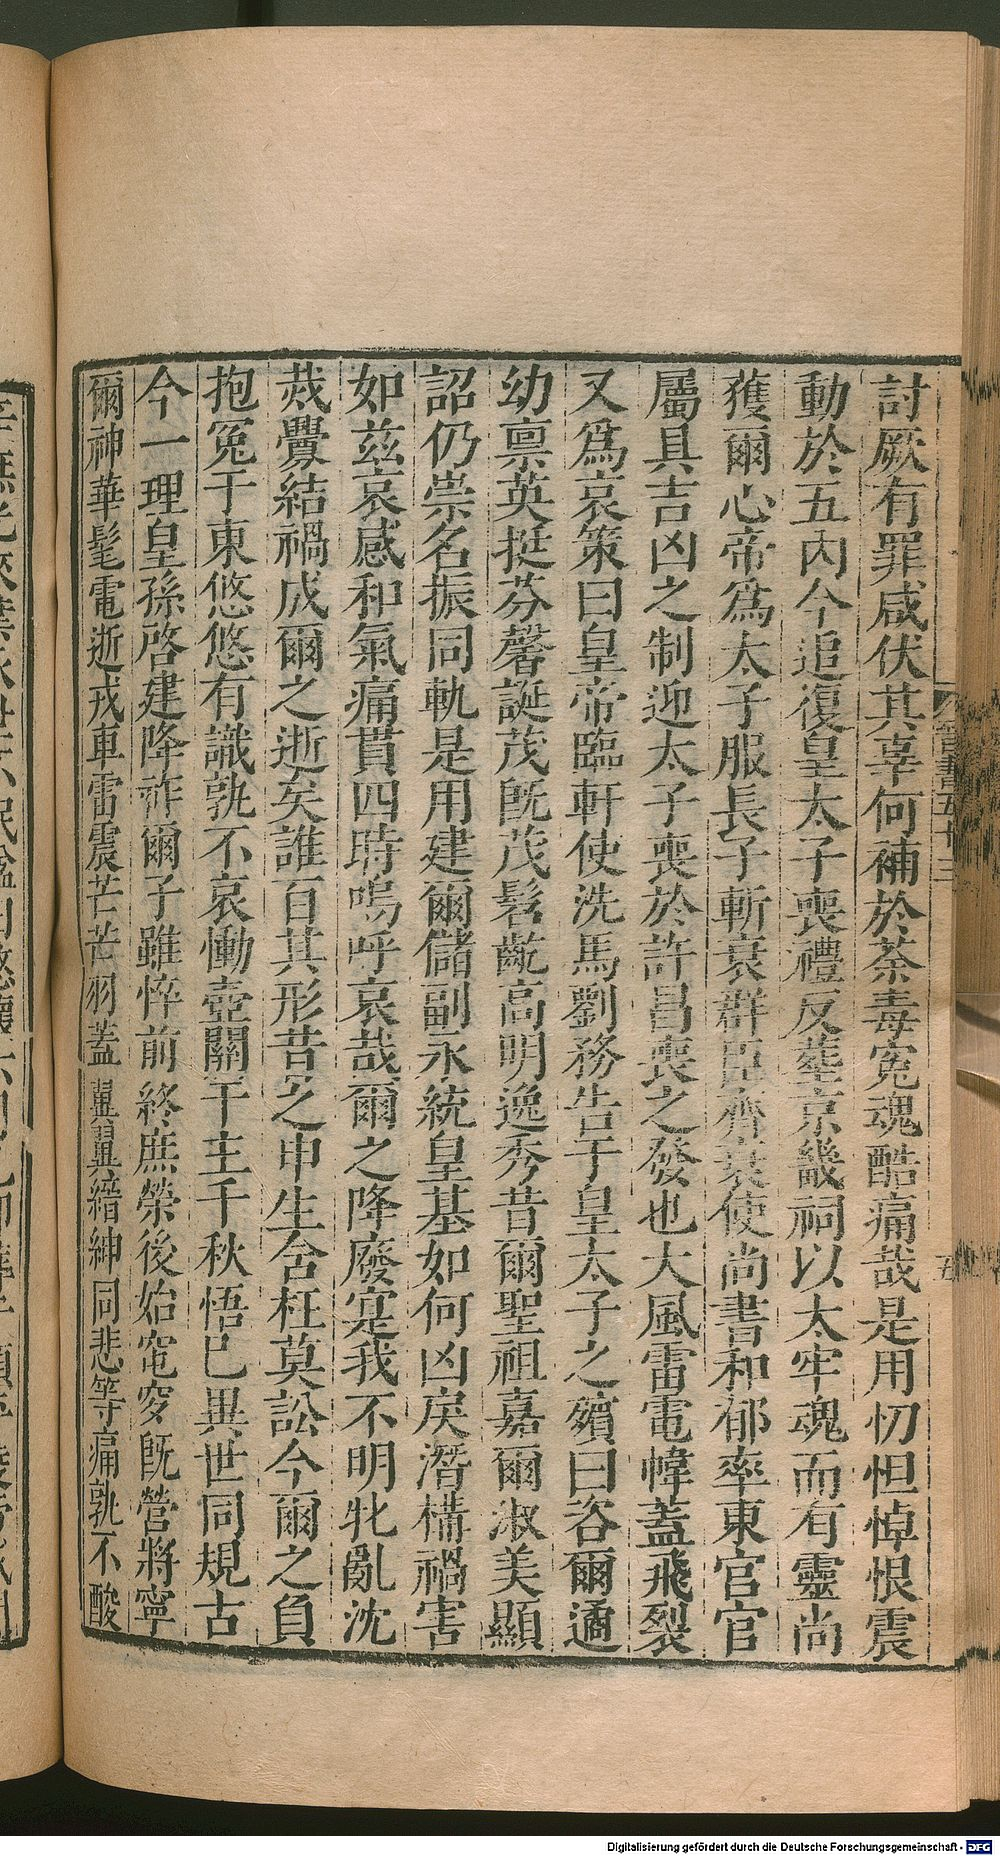 討厥有罪咸伏其辜何補於荼毒冤魂酷痛哉是用忉怛悼恨震
動於五內今追復皇太子喪禮反葬京畿祠以太牢魂而有靈尚
獲爾心帝為太子服長子斬衰群臣齊衰使尚書和郁率東宮官
屬具吉凶之制迎太子喪於許昌喪之發也大風雷電幃蓋飛裂
又為哀策曰皇帝臨軒使洗馬劉務告于皇太子之殯曰咨爾遹
幼禀英挺芬馨誕茂既茂髫齔高明逸秀昔爾聖祖嘉爾淑美顯
詔仍崇名振同軌是用建爾儲副永統皇基如何凶戾潛構禍害
如茲哀感和氣痛貫四時嗚呼哀哉爾之降廢寔我不明牝亂沈
烖釁結禍成爾之逝矣誰百其形昔之申生含枉莫訟今爾之負
抱冤于東悠悠有識孰不哀慟壺關干主千秋悟已異世同規古
今一理皇孫啓建降祚爾子雖悴前終庶榮後始窀穸既營將寧
爾神華髦電逝戎車雷震芒芒羽蓋翼翼縉紳同悲等痛孰不酸
晉書五十三
五
Digitalisierung gefördert durch die Deutsche Forschungsgemeinschaft - DFG